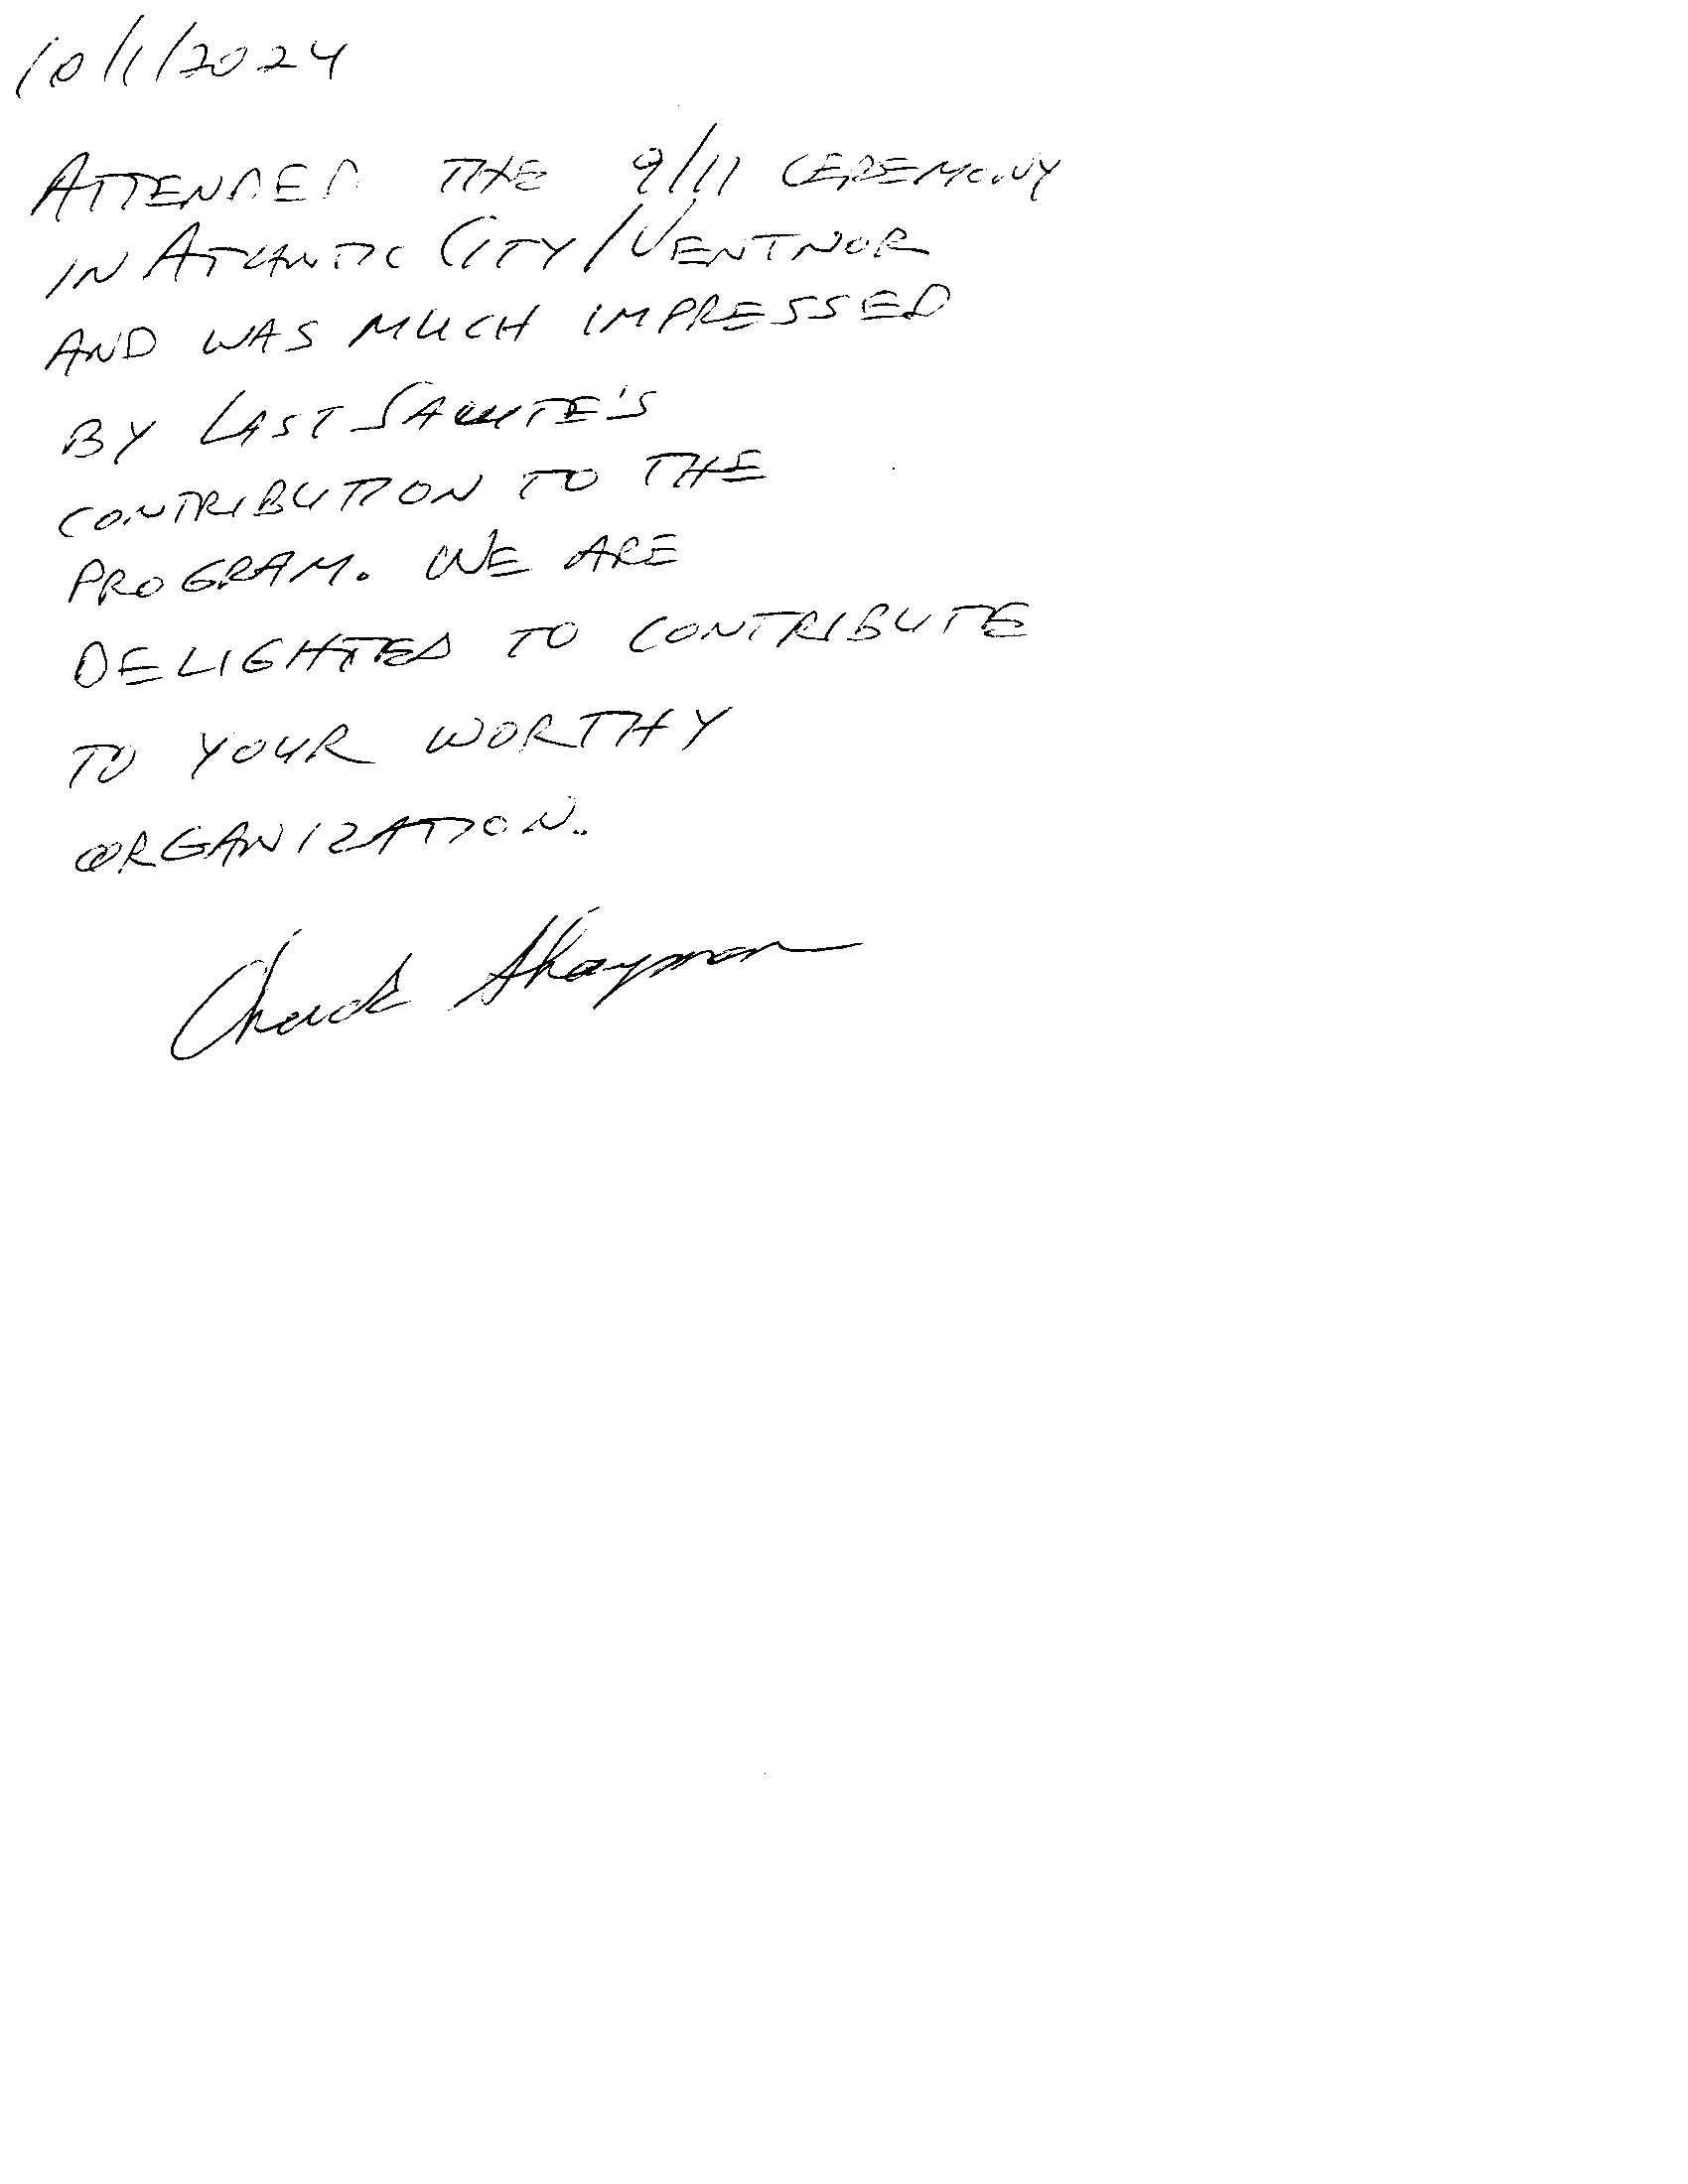 10/1/2024
ATTENDED THE 9/11 CEREMONY
IN ATLANTIC CITY/VENTNOR
AND WAS MUCH IMPRESSED
BY LAST SALUTE'S
CONTRIBUTION TO THE
PROGRAM. WE ARE
DELIGHTED TO CONTRIBUTE
TO YOUR WORTHY
ORGANIZATION.
Chuck